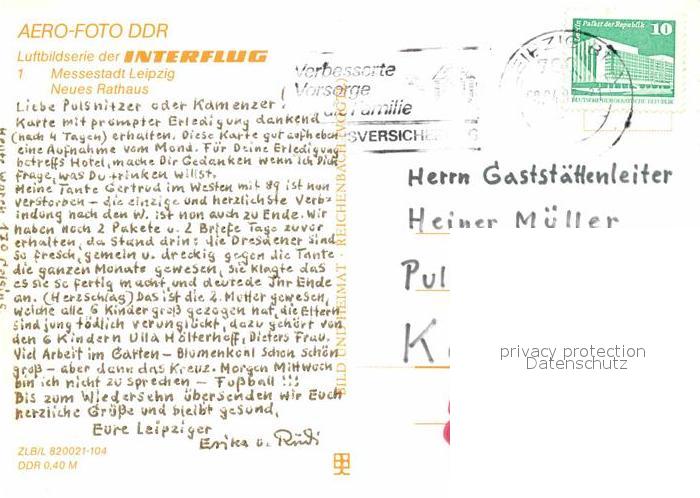 AERO-FOTO DDR
Luftbildserie der INTERFLUG
1 Messestadt Leipzig
Neues Rathaus
Liebe Pulsnitzer oder Kamenzer!
Karte mit prompter Erledigung dankend
(nach 4 Tagen) erhalten. Diese Karte gut aufheben
eine Aufnahme vom Mond. Für Deine Erledigung
betreffs Hotel, mache Dir Gedanken wenn ich Dich
frage, was Du trinken willst.
Meine Tante Gertrud im Westen mit 89 ist nun
verstorben – die einzige und herzlichste Verb=
indung nach den W. ist nun auch zu Ende. Wir
haben noch 2 Pakete u. 2 Briefe Tage zuvor
erhalten, da stand drin: die Dresdener sind
so frech, gemein u. dreckig gegen die Tante
die ganzen Monate gewesen, sie klagte das
es sie so fertig macht, und deutede Ihr Ende
an. (Herzschlag) Das ist die 2. Mutter gewesen,
welche alle 6 Kinder groß gezogen hat, die Eltern
sind jung tödlich verunglückt, dazu gehört von
den 6 Kindern Ulla Hölterhoff, Dieters Frau.
Viel Arbeit im Garten – Blumenkohl schon schön
groß – aber dann das Kreuz. Morgen Mittwoch
bin ich nicht zu sprechen – Fußball!!!
Bis zum Wiedersehn übersenden wir Euch
herzliche Grüße und bleibt gesund,
Eure Leipziger
Erika u. Rudi
Heute waren 13° Celsius
ZLB/L 820021-104
DDR 0,40 M
BILD UND HEIMAT · REICHENBACH (VOGTL)
Verbesserte
Vorsorge
Familie
SVERSICHE
LEIPZIG
Palast der Republik
10
DEUTSCHE DEMOKRATISCHE REPUBLIK
Herrn Gaststättenleiter
Heiner Müller
Pul
K
privacy protection
Datenschutz